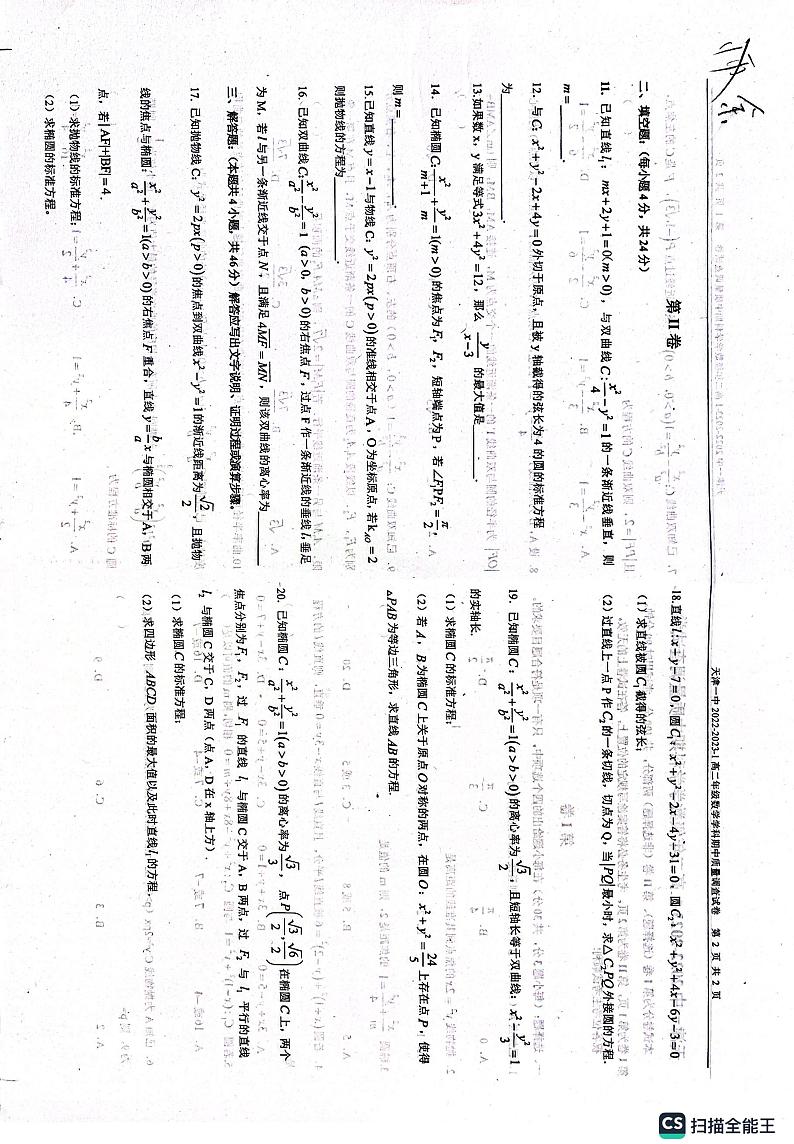 第 II 卷
二、填空题：（每小题 4 分，共 24 分）
11. 已知直线 l₁：mx+2y+1=0(m>0)，与双曲线 C：x²/4−y²=1 的一条渐近线垂直，则
m=______.
12. 与C：x²+y²−2x+4y=0 外切于原点，且被 y 轴截得的弦长为 4 的圆的标准方程
为______
13.如果数 x，y 满足等式3x²+4y²=12，那么 y/(x−3) 的最大值是______.
14. 已知椭圆 C：x²/(m+1)+y²/m=1(m>0)的焦点为F₁，F₂，短轴端点为 P，若∠F₁PF₂=π/2，
则 m=______.
15.已知直线 y=x−1与物线 C：y²=2px(p>0)的准线相交于点 A，O 为坐标原点，若k_AO=2
则抛物线的方程为______.
16. 已知双曲线C：x²/a²−y²/b²=1 (a>0，b>0)的右焦点 F，过点 F 作一条渐近线的垂线 l，垂足
为 M，若 l 与另一条渐近线交于点 N，且满足 4MF=MN，则该双曲线的离心率为______
三、解答题：（本题共 4 小题，共 46 分）解答应写出文字说明、证明过程或演算步骤。
17. 已知抛物线 C：y²=2px(p>0)的焦点到双曲线 x²−y²=1的渐近线距离为√2/2，且抛物
线的焦点与椭圆：x²/a²+y²/b²=1(a>b>0)的右焦点 F 重合，直线y=b/a x与椭圆相交于 A，B 两
点，若|AF|+|BF|=4.
（1）求抛物线的标准方程；
（2）求椭圆的标准方程。
18.直线 l：x−y−7=0，圆 C₁：x²+y²−2x−4y−31=0，圆 C₂：x²+y²+4x−6y−3=0
（1）求直线被圆 C₁ 截得的弦长；
（2）过直线上一点 P 作 C₂的一条切线，切点为 Q，当|PQ|最小时，求△C₂PQ外接圆的方程.
19. 已知椭圆 C：x²/a²+y²/b²=1(a>b>0)的离心率为√3/2，且短轴长等于双曲线：x²−y²/3=1
的实轴长.
（1）求椭圆 C 的标准方程；
（2）若 A，B 为椭圆 C 上关于原点 O 对称的两点，在圆 O：x²+y²=24/5 上存在点 P，使得
△PAB 为等边三角形，求直线 AB 的方程.
20. 已知椭圆 C：x²/a²+y²/b²=1(a>b>0)的离心率为√3/3，点 P(√3/2, √6/2)在椭圆 C 上，两个
焦点分别为F₁，F₂，过 F₁ 的直线 l₁ 与椭圆 C 交于 A，B 两点，过 F₂ 与 l₁ 平行的直线
l₂ 与椭圆 C 交于 C，D 两点（点 A，D 在 x 轴上方）.
（1）求椭圆 C 的标准方程；
（2）求四边形 ABCD 面积的最大值以及此时直线 l₁ 的方程.
天津一中 2022-2023-1 高二年级数学学科期中质量调查试卷 第 2 页 共 2 页
CS 扫描全能王